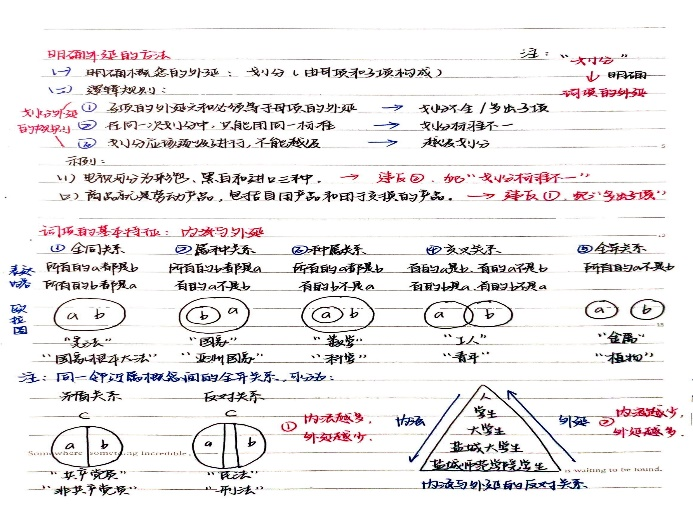 明确外延的方法
注：“划分”
(一) 明确概念的外延：划分（由母项和子项构成）
↓ 明确
词项的外延
(二) 逻辑规则：
划分外延的规则
① 子项的外延之和必须等于母项的外延 → 划分不全/多出子项
② 在同一次划分中，只能用同一标准 → 划分标准不一
③ 划分应逐级进行，不能越级 → 越级划分
示例：
(1) 电视可分为彩色、黑白和进口三种。→ 违反②，犯“划分标准不一”
(2) 商品就是劳动产品，包括自用产品和用于交换的产品。→ 违反①，犯“多出子项”
词项的基本特征：内涵与外延
① 全同关系 ② 属种关系 ③ 种属关系 ④ 交叉关系 ⑤ 全异关系
所有的a都是b 所有的b都是a 所有的a都是b 有的a是b，有的a不是b 所有的a不是b
所有的b都是a 有的a不是b 有的b不是a 有的b是a，有的b不是a
欧拉图
a b b a a b a b a b
“宪法” “国家” “数学” “工人” “金属”
“国家根本大法” “亚洲国家” “科学” “青年” “植物”
注：同一邻近属概念间的全异关系，可分为：
矛盾关系 反对关系
C C
a b a b
“共产党员” “民法”
“非共产党员” “刑法”
① 内涵越多，外延越少。
内涵
人
学生
大学生
盐城大学生
盐城师范学院学生
外延
② 内涵越少，外延越多。
内涵与外延的反对关系
Somewhere something incredible
is waiting to be found.